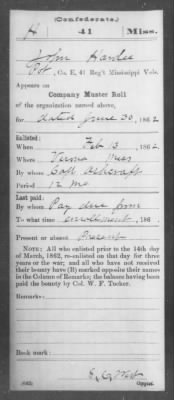 (Confederate.)
H 41 Miss.
John Hardee
Pvt, Co. E, 41 Reg't Mississippi Vols.
Appears on
Company Muster Roll
of the organization named above,
for dated June 30, 1862
Enlisted:
When Feb 13, 1862
Where Verona Miss
By whom Capt Ashcraft
Period 12 mo
Last paid:
By whom Pay due from
To what time enrollment, 186
Present or absent Present
NOTE: All who enlisted prior to the 14th day
of March, 1862, re-enlisted on that day for three
years or the war; and all who have not received
their bounty have (B) marked opposite their names
in the Column of Remarks; the balance having been
paid the bounty by Col. W. F. Tucker.
Remarks:
Book mark:
Copyist.